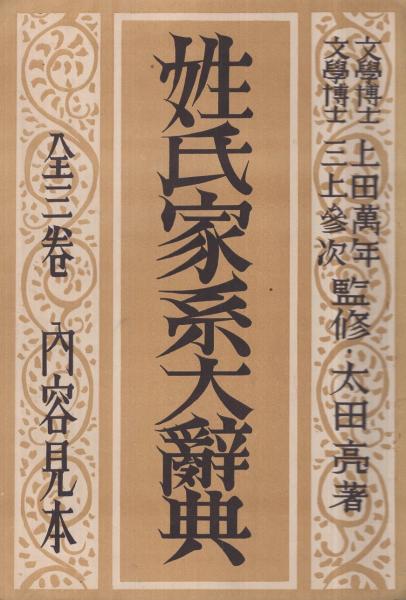 文學博士 上田萬年
文學博士 三上參次
監修・太田亮著
姓氏家系大辭典
全三卷 內容見本